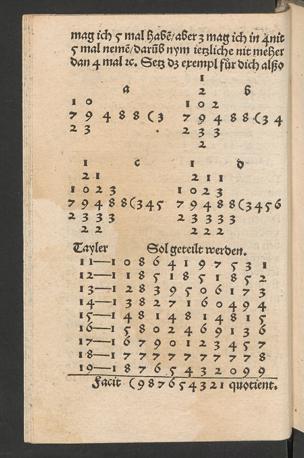 mag ich 5 mal habẽ/aber 3 mag ich in 4 nit
5 mal nemẽ/darũb nym ietzliche nit meher
dan 4 mal ꝛc. Setz dz exempl für dich alßo
1
a 2 b
1 0 1 0 2
7 9 4 8 8 (3 7 9 4 8 8 (3 4
2 3 2 3 3
2
1 c 1 d
2 1 2 1 1
1 0 2 3 1 0 2 3
7 9 4 8 8 (3 4 5 7 9 4 8 8 (3 4 5 6
2 3 3 3 2 3 3 3 3
2 2 2 2 2
Tayler Sol geteilt werden.
11—1 0 8 6 4 1 9 7 5 3 1
12—1 1 8 5 1 8 5 1 8 5 2
13—1 2 8 3 9 5 0 6 1 7 3
14—1 3 8 2 7 1 6 0 4 9 4
15—1 4 8 1 4 8 1 4 8 1 5
16—1 5 8 0 2 4 6 9 1 3 6
17—1 6 7 9 0 1 2 3 4 5 7
18—1 7 7 7 7 7 7 7 7 7 8
19—1 8 7 6 5 4 3 2 0 9 9
Facit (9 8 7 6 5 4 3 2 1 quotient.